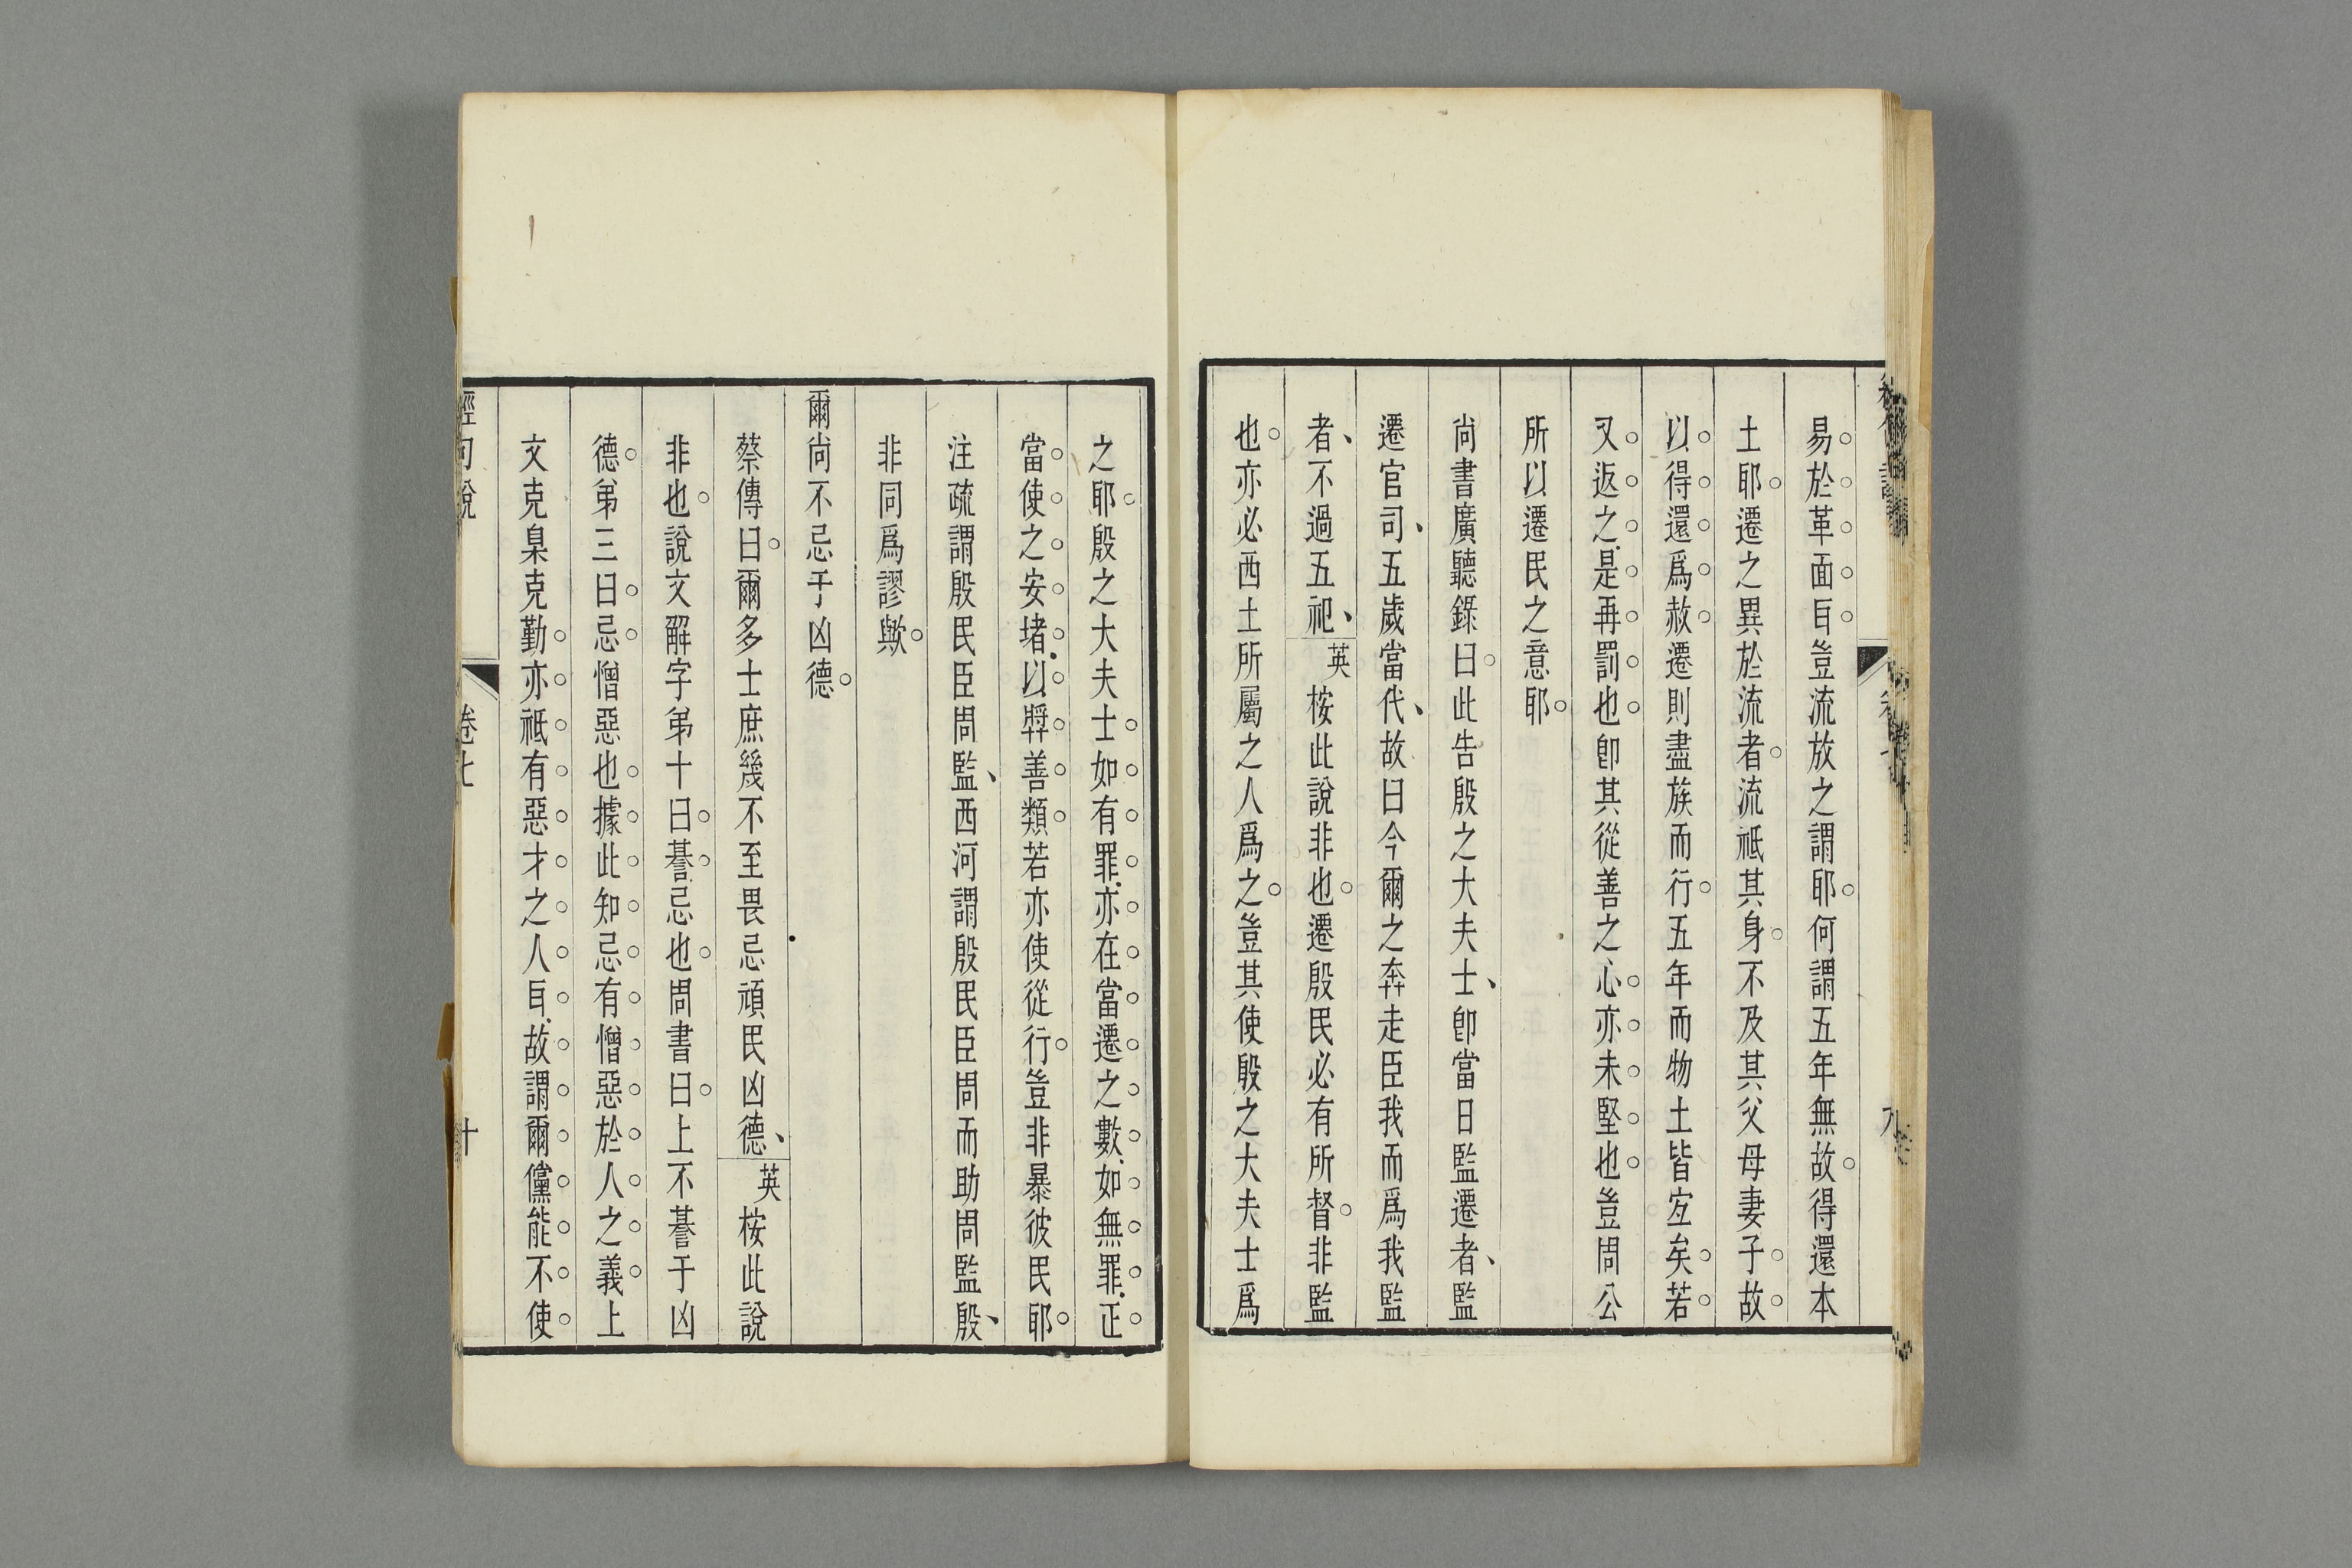 易於革面耳豈流放之謂耶何謂五年無故得還本
土耶遷之異於流者流祗其身不及其父母妻子故
以得還爲赦遷則盡族而行五年而物土皆宜矣若
又返之是再罰也卽其從善之心亦未堅也豈周公
所以遷民之意耶
尚書廣聽錄曰此告殷之大夫士卽當日監遷者監
遷官司五歲當代故曰今爾之奔走臣我而爲我監
者不過五祀英桉此說非也遷殷民必有所督非監
也亦必西土所屬之人爲之豈其使殷之大夫士爲
之耶殷之大夫士如有罪亦在當遷之數如無罪正
當使之安堵以奬善類若亦使從行豈非暴彼民耶
注疏謂殷民臣周監西河謂殷民臣周而助周監殷
非同爲謬歟
爾尚不忌于凶德
蔡傳曰爾多士庶幾不至畏忌頑民凶德英桉此說
非也說文解字弟十曰諅忌也周書曰上不諅于凶
德弟三曰忌憎惡也據此知忌有憎惡於人之義上
文克臬克勤亦祗有惡才之人耳故謂爾儻能不使
經句說 卷七 十